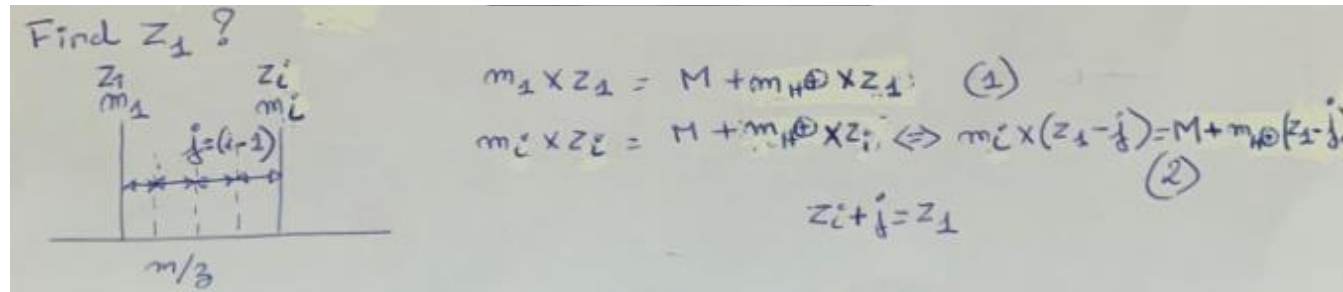 Find Z₁ ?
Z₁ Zi
m₁ mi
j=(i-1)
m/z
m₁ x Z₁ = M + mH⊕ x Z₁ (1)
mi x Zi = M + mH⊕ x Zi ⇔ mi x (Z₁-j) = M + mH⊕(Z₁-j)
(2)
Zi + j = Z₁